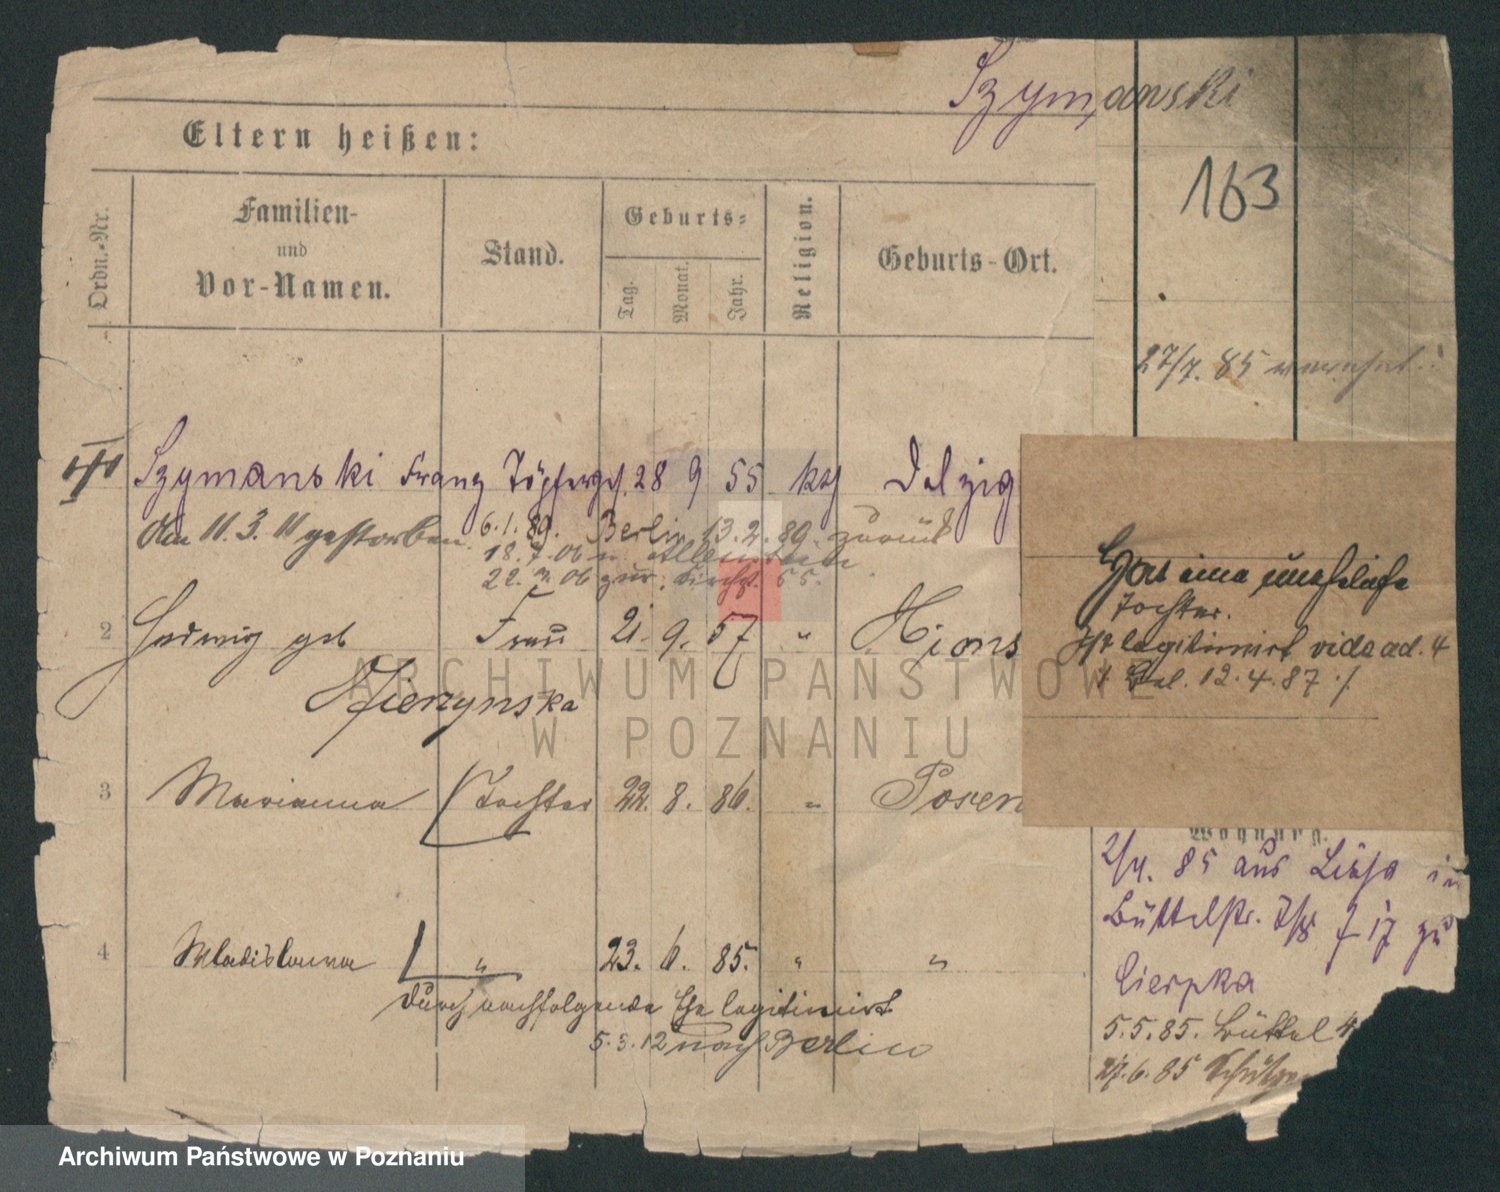 Szymanski
Eltern heißen:
163
Ordn.-Nr.
Familien-
und
Vor-Namen.
Stand.
Geburts-
Tag.
Monat.
Jahr.
Religion.
Geburts-Ort.
27/7. 85
Szymanski Franz Töpferges. 28 9 55 kth Dolzig
Am 11. 3. 11 gestorben. 6.1.89. Berlin 13.2.89. zurück
18.7.06 n. Allenstein
22. 06 zur. 55.
Hat eine uneheliche
Tochter.
Ist legitimirt vide ad. 4
12.4.87 ./.
2 Hedwig geb Frau 21. 9. 57 "
ARCHIWUM PAŃSTWOWE
W POZNANIU
3 Marianna Tochter 22. 8. 86. " Posen
Wohnung.
2/4. 85 aus Lissa in
Büttelstr. 17 zu
Cierpka
5.5.85. Büttel 4
27.6.85 Schützen
4 Wladislawa " 23. 6. 85. " "
Durch nachfolgende Ehe legitimirt
5.3.12 nach Berlin
Archiwum Państwowe w Poznaniu